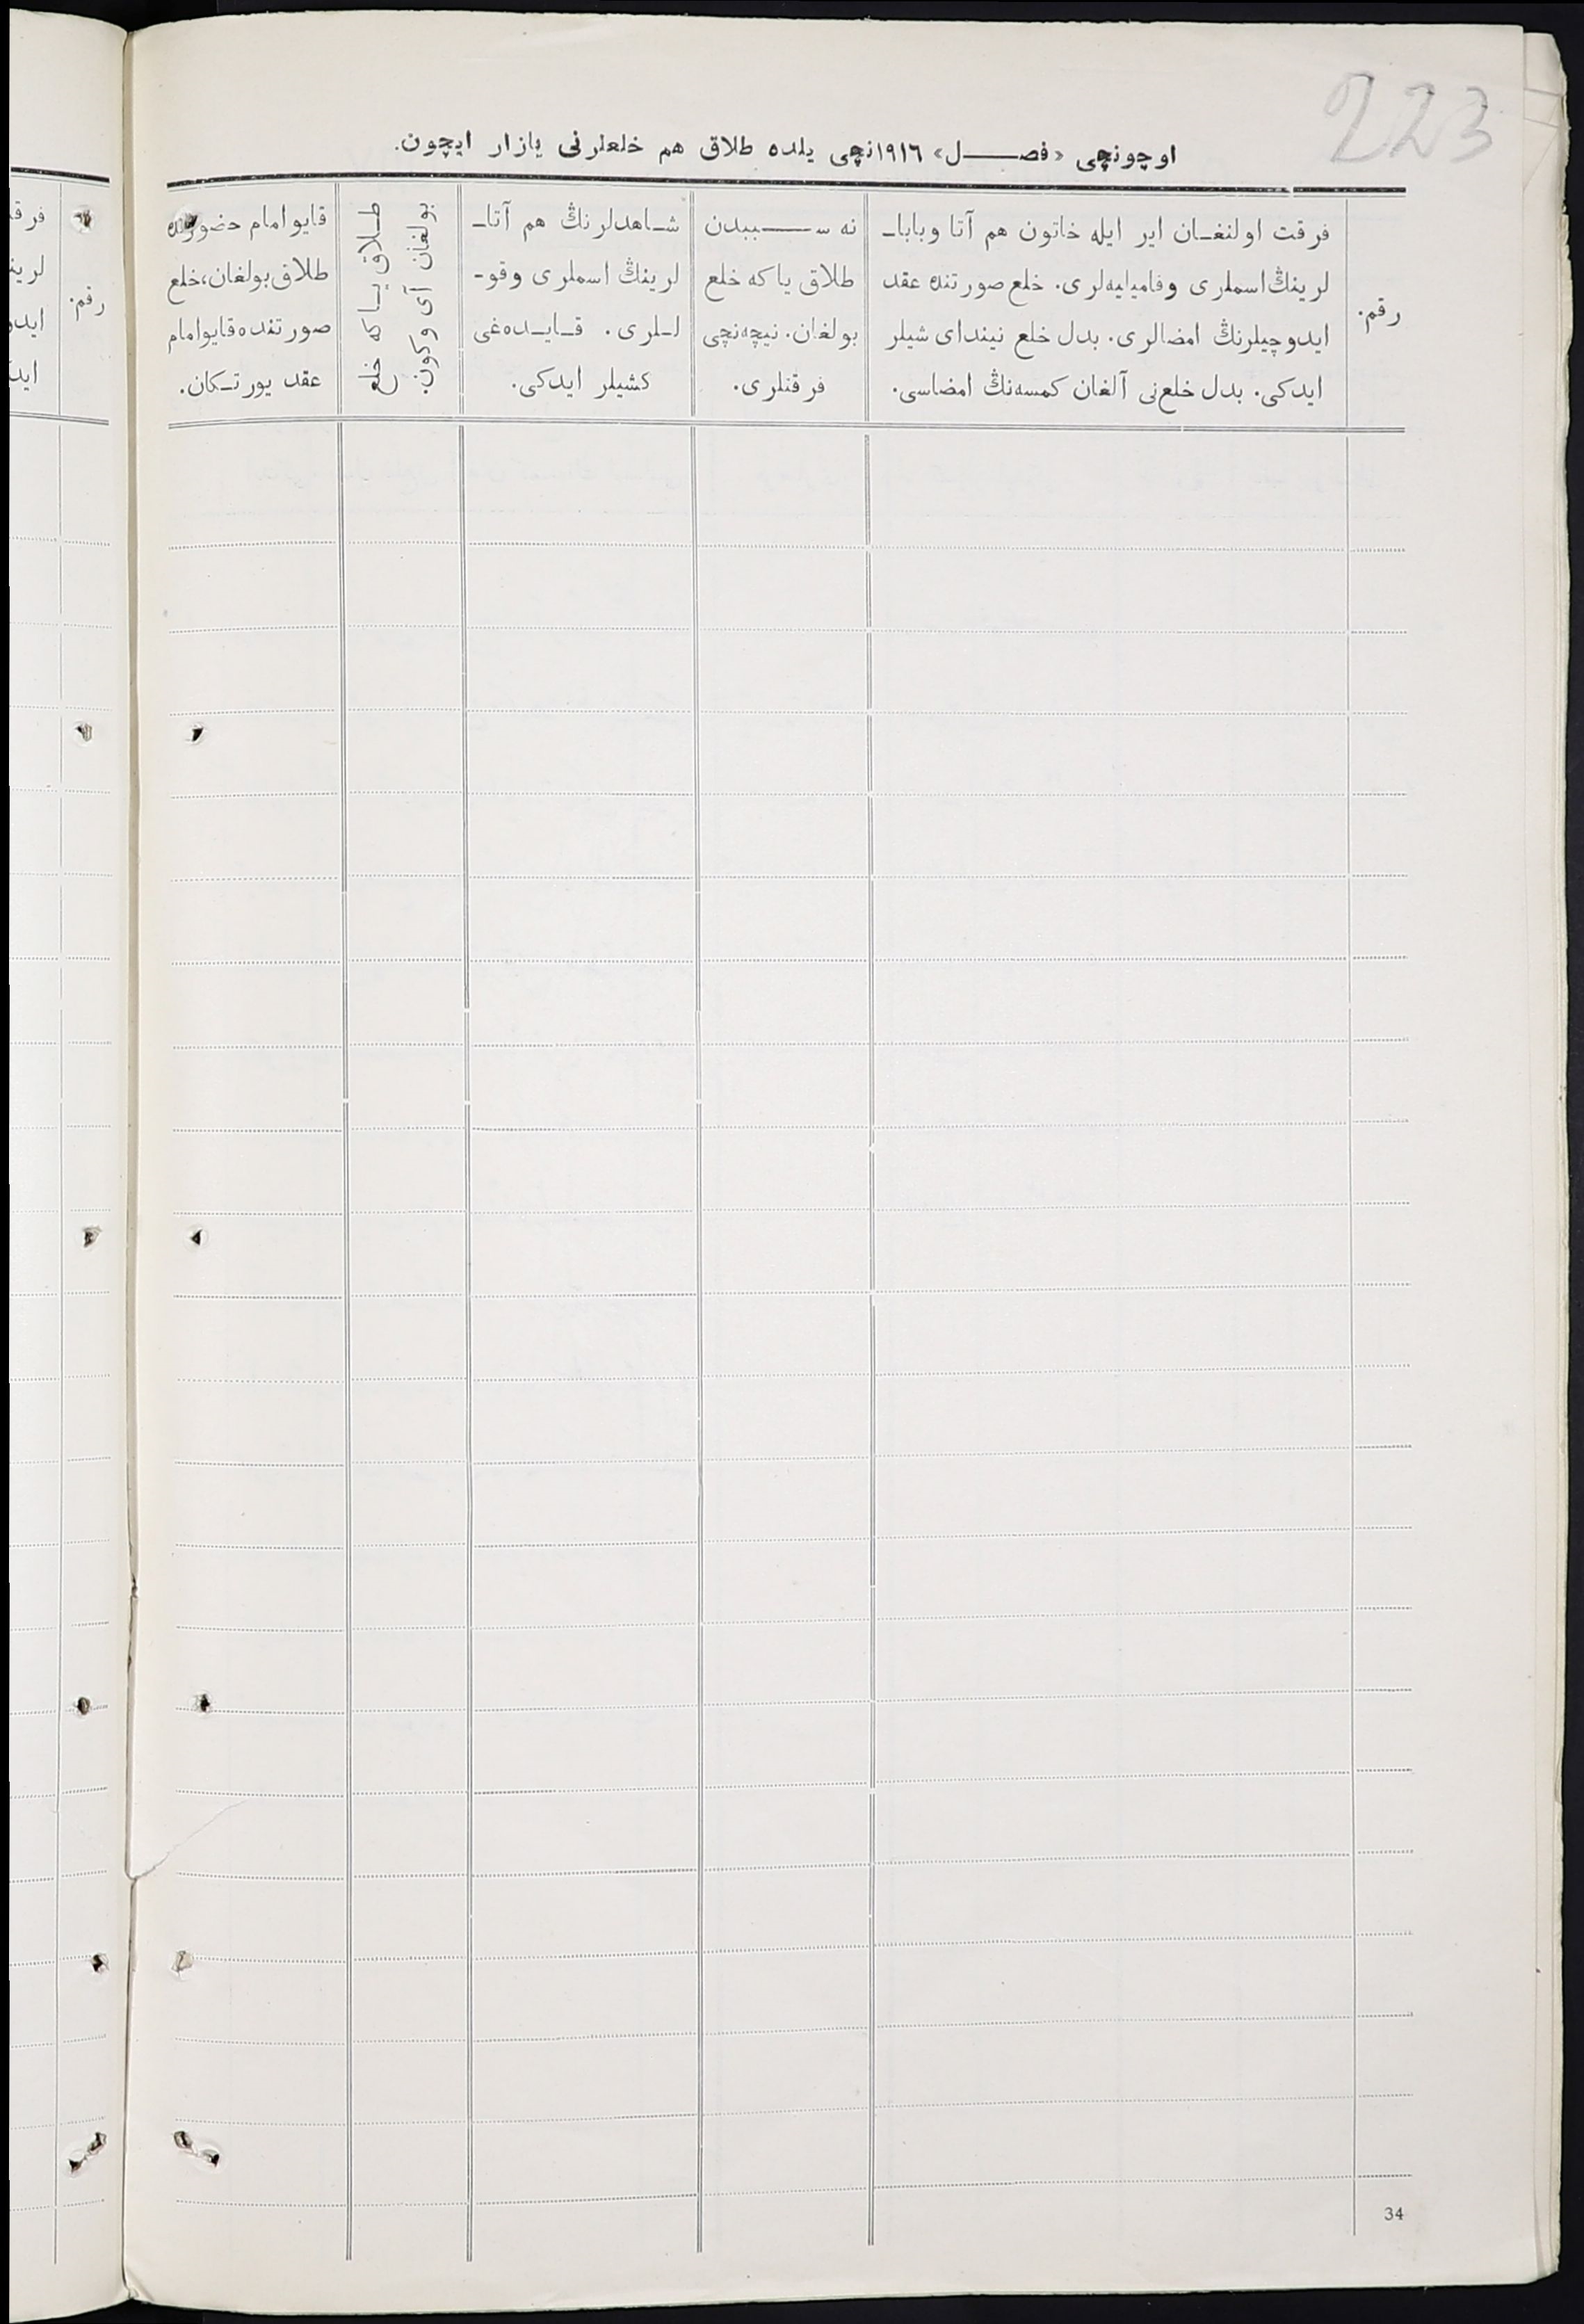 223
اوچونچی «فصل» ۱۹۱٦نچی یلده طلاق هم خلعلرنی یازار ایچون.
رقم.
فرقت اولنغان ایر ایله خاتون هم آتا وبابا-
لرینڭ اسملری وفامیلیه‌لری. خلع صورتنده عقد
ایدوچیلرنڭ امضالری. بدل خلع نیندای شیلر
ایدکی. بدل خلع‌نی آلغان کمسه‌نڭ امضاسی.
نه سببدن
طلاق یا که خلع
بولغان. نیچه‌نچی
فرقتلری.
شاهدلرنڭ هم آتا-
لرینڭ اسملری وقو-
لری. قایده‌غی
کشیلر ایدکی.
طلاق یا که خلع
بولغان آی وکون.
قایو امام حضورنده
طلاق بولغان، خلع
صورتنده قایو امام
عقد یورتکان.
رقم.
34